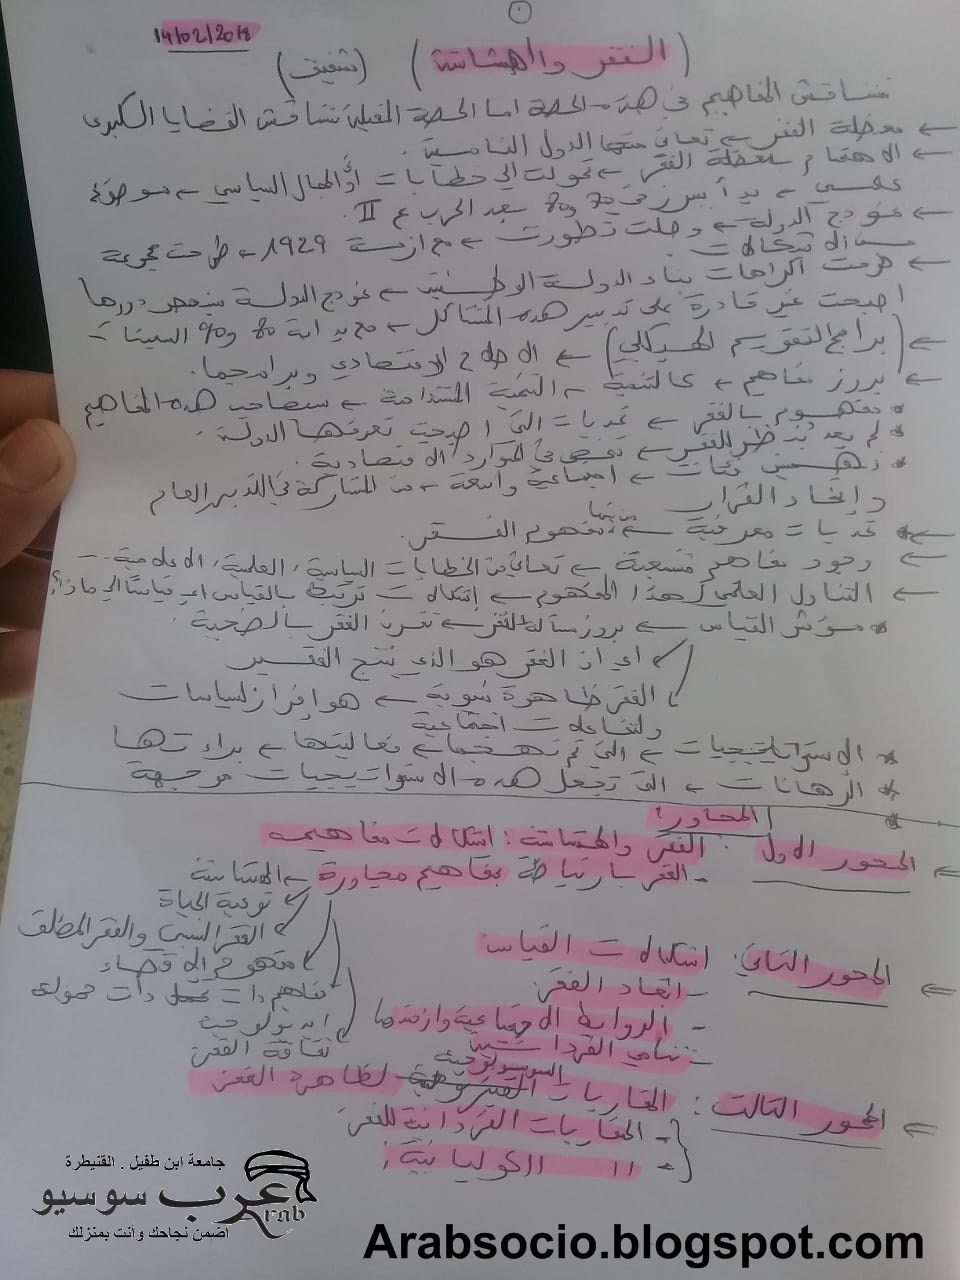 14/02/2018
(الفقر والهشاشة) (شفيق)
نتناقش المفاهيم في هذه الحصة اما الحصة المقبلة نتناقش القضايا الكبرى
← معضلة الفقر ← تعاني منها الدول النامية.
← الاهتمام بمعضلة الفقر ← تحولت الى خطابات المجال السياسي ← موضوع
علمي ← بدأ يبرز في 70 و80 بعد الحرب ع II.
← نموذج الدولة ← وصلت تطورت ← مع ازمة 1929 ← طرحت مجموعة
من الاشكالات
← طرحت اكراهات بناء الدولة الوطنية ← نموذج الدولة ينحصر دورها
اصبحت غير قادرة على تدبير هذه المشاكل ← مع بداية 80 و90
← (برامج التقويم الهيكلي) ← الاصلاح الاقتصادي وبرامجها.
← بروز مفاهيم ← كالتنمية ← التنمية المستدامة ← ستصاحب هذه المفاهيم
مفهوم الفقر ← تحديات التي اصبحت تعرفها الدولة.
لم يعد ينظر للفقر ← نقص في الموارد الاقتصادية.
تهميش فئات ← اجتماعية واسعة ← من المشاركة في التدبير العام
واتخاذ القرار
← تحديات معرفية ← من بينها مفهوم الفقر.
← وجود مفاهيم متشعبة ← تعاني من الخطابات السياسية، العلمية، الاعلامية...
← التناول العلمي لهذا المفهوم ← اشكالات ترتبط بالقياس اي قياسا الى ماذا؟
مؤشر القياس ← بروز مسألة الفقر ← تقرن الفقر بالضحية.
اي ان الفقر هو الذي ينتج الفقير
الفقر ظاهرة بنيوية ← هو إفراز لسياسات
ولتفاعلات اجتماعية
الاستراتيجيات ← التي تم نهجها ← فعاليتها ←
الرهانات ← التي تجعل هذه الاستراتيجيات موجهة
المحاور:
← المحور الاول: الفقر والهشاشة: اشكالات مفاهيمية
- الفقر بارتباطه بمفاهيم مجاورة ← الهشاشة
نوعية الحياة
الفقر النسبي والفقر المطلق
مفهوم الاقصاء
مفاهيم ذات حمولة
ايديولوجية
ثقافة الفقر
← المحور الثاني: اشكالات القياس
- ابعاد الفقر
- الروابط الاجتماعية وازمتها
- تنامي الفردانية
← المحور الثالث: المقاربات السوسيولوجية لظاهرة الفقر
- المقاربات الفردانية للفقر
- // الكوليانية
جامعة ابن طفيل . القنيطرة
عرب سوسيو
Arab
اضمن نجاحك وأنت بمنزلك
Arabsocio.blogspot.com